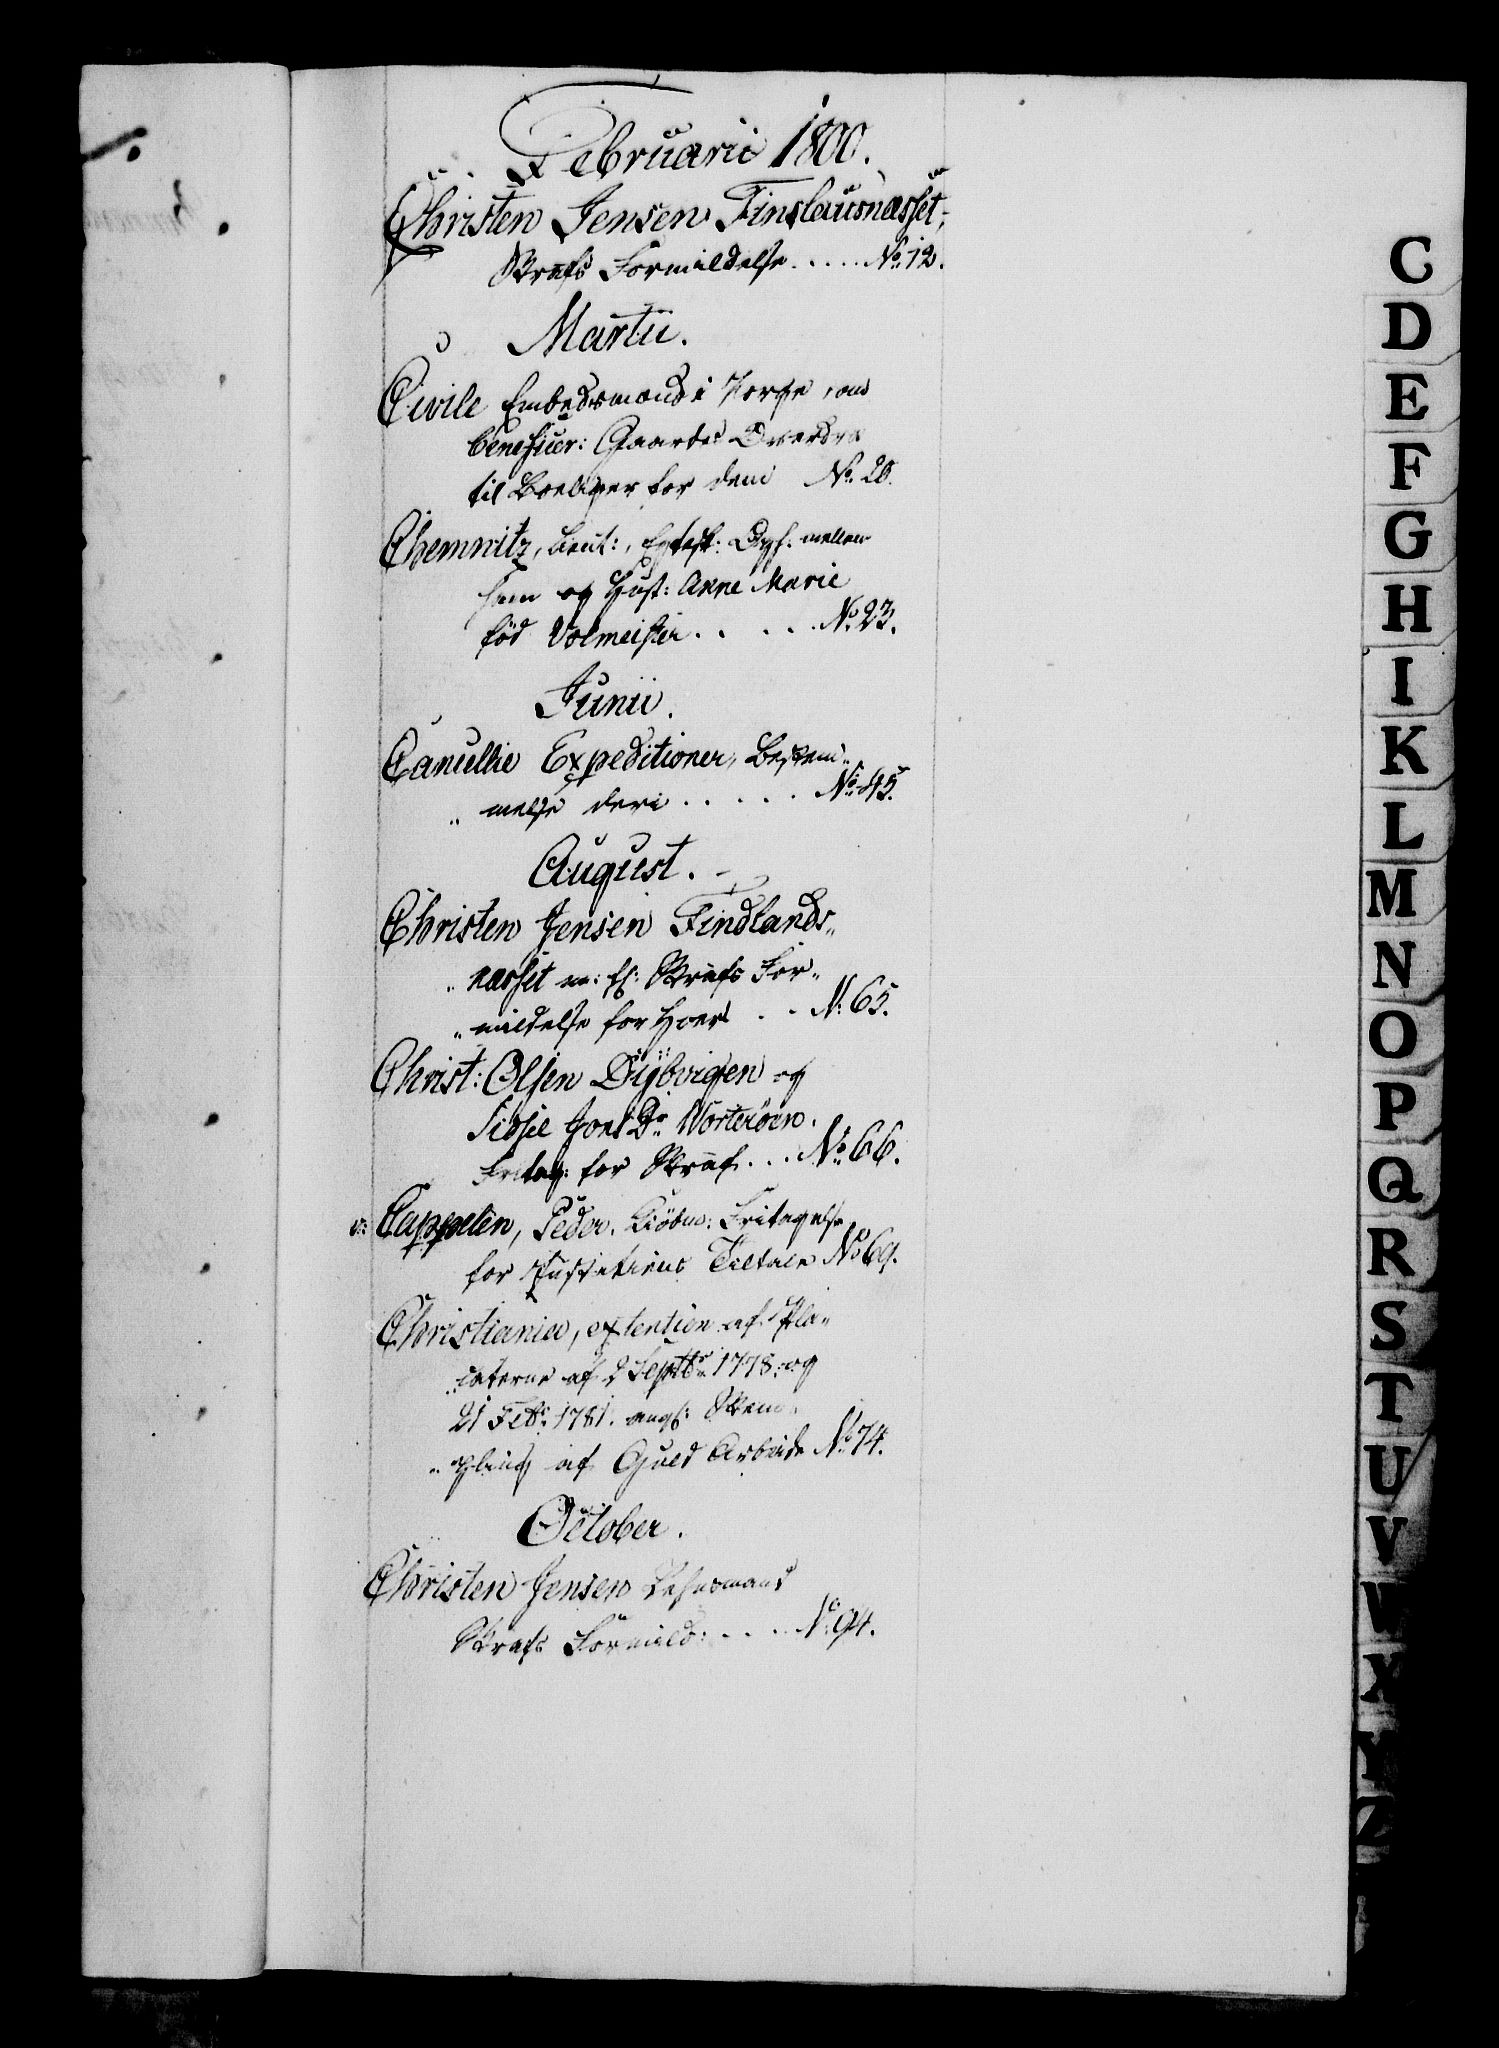 Februarii 1800.
Christen Jensen Finslausnæsset,
Strafs Formildelse..... No. 12.
Martii.
Civile Embedsmænd i Norge, om
beneficer: Gaardes
til Boeliger for dem No. 20.
Chemnitz, Lieut:, Ægtesk: Oph: mellem
ham og Hust: Anne Marie
föd Volmeister..... No. 23.
Junii.
Cancellie Expeditioner, Bestem„
„melse deri..... No. 45.
August.
Christen Jensen Findlands„
„næsset m: fl: Strafs For„
„mildelse for Hoer .. N: 65.
Christ: Olsen Dÿbvigen og
Sidsel Jons Dr. Norteröen.
Fritag: for Straf... No. 66.
v: Cappelen, Peder, Kiöbm: Fritagelse
for Justitiens Tiltale No 69.
Christiania, extention af Pla„
„caterne af 2 Septbr. 1778. og
21 Febr. 1781. angl: Stem„
„pling af Guld Arbeide No. 74.
October.
Christen Jensen Lehnsmand
Strafs Formild:.... No. 94.
C
D
E
F
G
H
I
K
L
M
N
O
P
Q
R
S
T
U
V
W
X
Y
Z